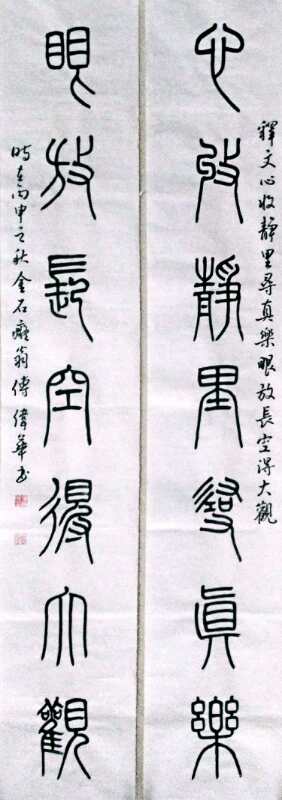 釋文心收靜里尋真樂眼放長空得大觀
心收靜里尋真樂
眼放長空得大觀
時在丙申之秋金石癡翁傅偉華書